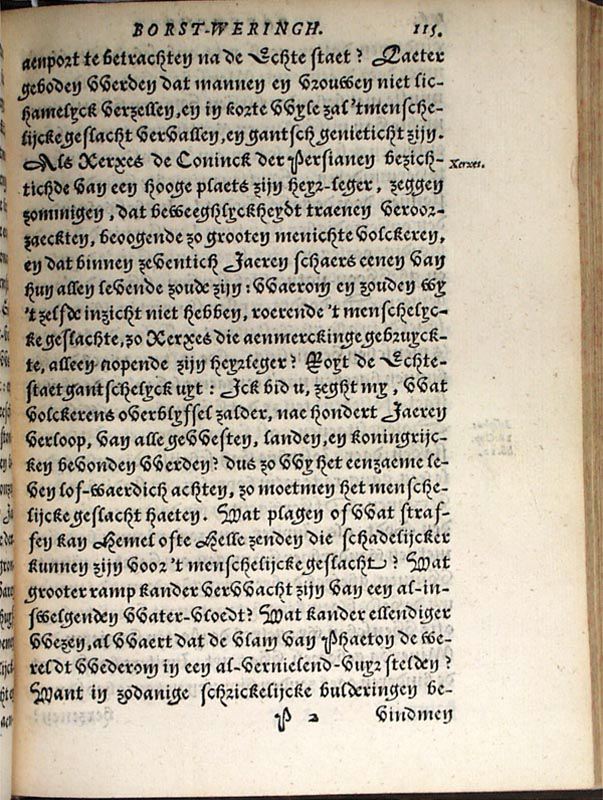 BORST-WERINGH. 115.
aenport te betrachten na de Echte staet? Laeter
geboden VVerden dat mannen en vrouwen niet lic-
hamelyck verzellen, en in korte VVyle zal 'tmensche-
lijcke geslacht vervallen, en gantsch genieticht zijn.
Als Xerxes de Coninck der Persianen bezich- Xerxes.
tichde van een hooge plaets zijn heyr-leger, zeggen
zommigen, dat beweeghlyckheydt traenen veroor-
zaeckten, beoogende zo grooten menichte volckeren,
en dat binnen zeventich Jaeren schaers eenen van
hun allen levende zoude zijn: VVaerom en zouden wy
't zelfde inzicht niet hebben, roerende 't menschelyc-
ke geslachte, zo Xerxes die aenmerckinge gebruyck-
te, alleen nopende zijn heyrleger? Royt de Echte-
staet gantschelyck uyt: Ick bid u, zeght my, VVat
volckerens overblyfsel zalder, nae hondert Jaeren
verloop, van alle geVVesten, landen, en koningrijc-
ken bevonden VVerden? dus zo VVy het eenzaeme le-
ven lof-waerdich achten, zo moetmen het mensche-
lijcke geslacht haeten. Wat plagen of VVat straf-
fen kan Hemel ofte Helle zenden die schadelijcker
kunnen zijn voor 't menschelijcke geslacht? Wat
grooter ramp kander verVVacht zijn van een al-in-
swelgenden VVater-vloedt? Wat kander ellendiger
VVezen, al VVaert dat de vlam van Phaeton de we-
reldt VVederom in een al-vernielend-vuyr stelden?
Want in zodanige schrickelijcke bulderingen be-
P 2 vindmen